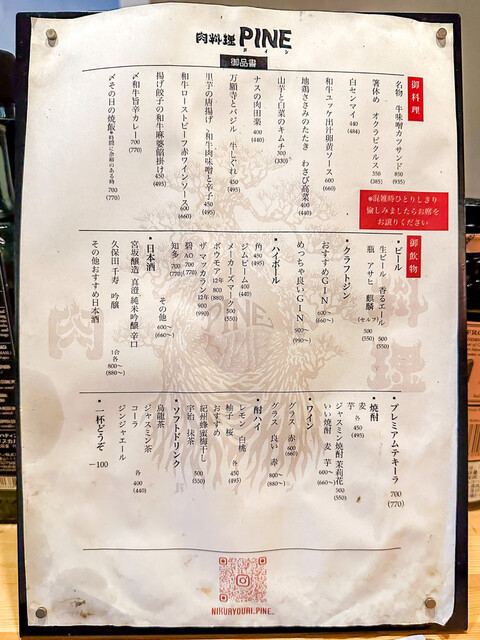 肉料理 PINE
パイン
御品書
御料理
名物 牛味噌カツサンド 850 (935)
箸休め オクラピクルス 350 (385)
白センマイ 440 (484)
和牛ユッケ出汁卵黄ソース 600 (660)
地鶏ささみのたたき わさび高菜 400 (440)
山芋と白菜のキムチ 300 (330)
ナスの肉田楽 400 (440)
万願寺とバジル 牛しぐれ 450 (495)
里芋の唐揚げ、和牛肉味噌と辛子 450 (495)
和牛ローストビーフ赤ワインソース 600 (660)
揚げ餃子の和牛麻婆餡掛け 450 (495)
〆和牛旨辛カレー 700 (770)
〆その日の焼飯 *時間に余裕のある時 700 (770)
●混雑時ひとりしきり
愉しみましたらお席を
お譲りください
御飲物
・ビール
生ビール 香るエール 500 (550)
瓶 アサヒ 麒麟 (セルフ) 500 (550)
・クラフトジン
おすすめGIN 600〜 (660〜)
めっちゃ良いGIN 900〜 (990〜)
・ハイボール
角 450 (495)
ジムビーム 400 (440)
メーカーズマーク 500 (550)
ボウモア 12年 800 (880)
ザ マッカラン 12年 900 (990)
碧AO 700 (770)
知多 700 (770)
その他 600〜 (660〜)
・日本酒
宮坂醸造 真澄 純米吟醸 辛口
久保田 千寿 吟醸
1合 各 800〜 (880〜)
その他おすすめ日本酒
・プレミアムテキーラ 700 (770)
・焼酎
麦 芋 各 450 (495)
ジャスミン焼酎 茉莉花 500 (550)
いい焼酎 麦 芋 600〜 (660〜)
・ワイン
グラス 赤 600 (660)
グラス 良い 赤 800〜 (880〜)
・酎ハイ
レモン 白桃
柚子 桜 各 450 (495)
おすすめ
紀州蜂蜜梅干し
宇治 抹茶 500 (550)
・ソフトドリンク
烏龍茶
ジャスミン茶
コーラ
ジンジャエール 各 400 (440)
・一杯どうぞ ー100
肉
料理
PINE
NIKURYOURI_PINE_